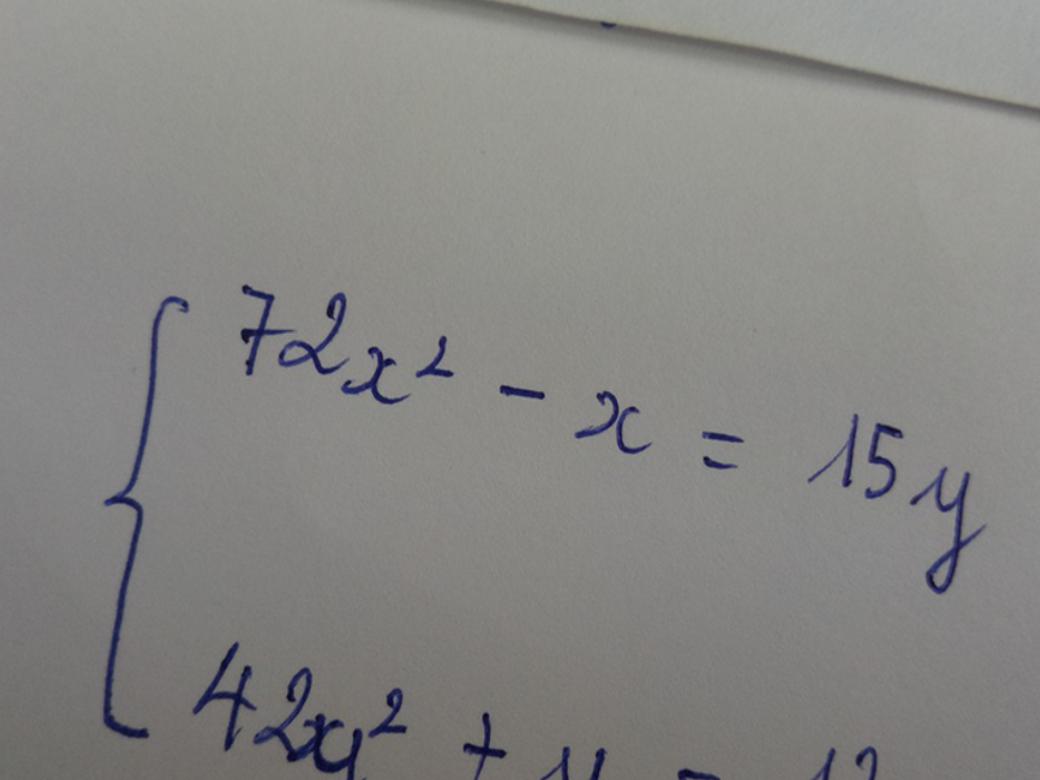 72x² - x = 15y
42y² + y =